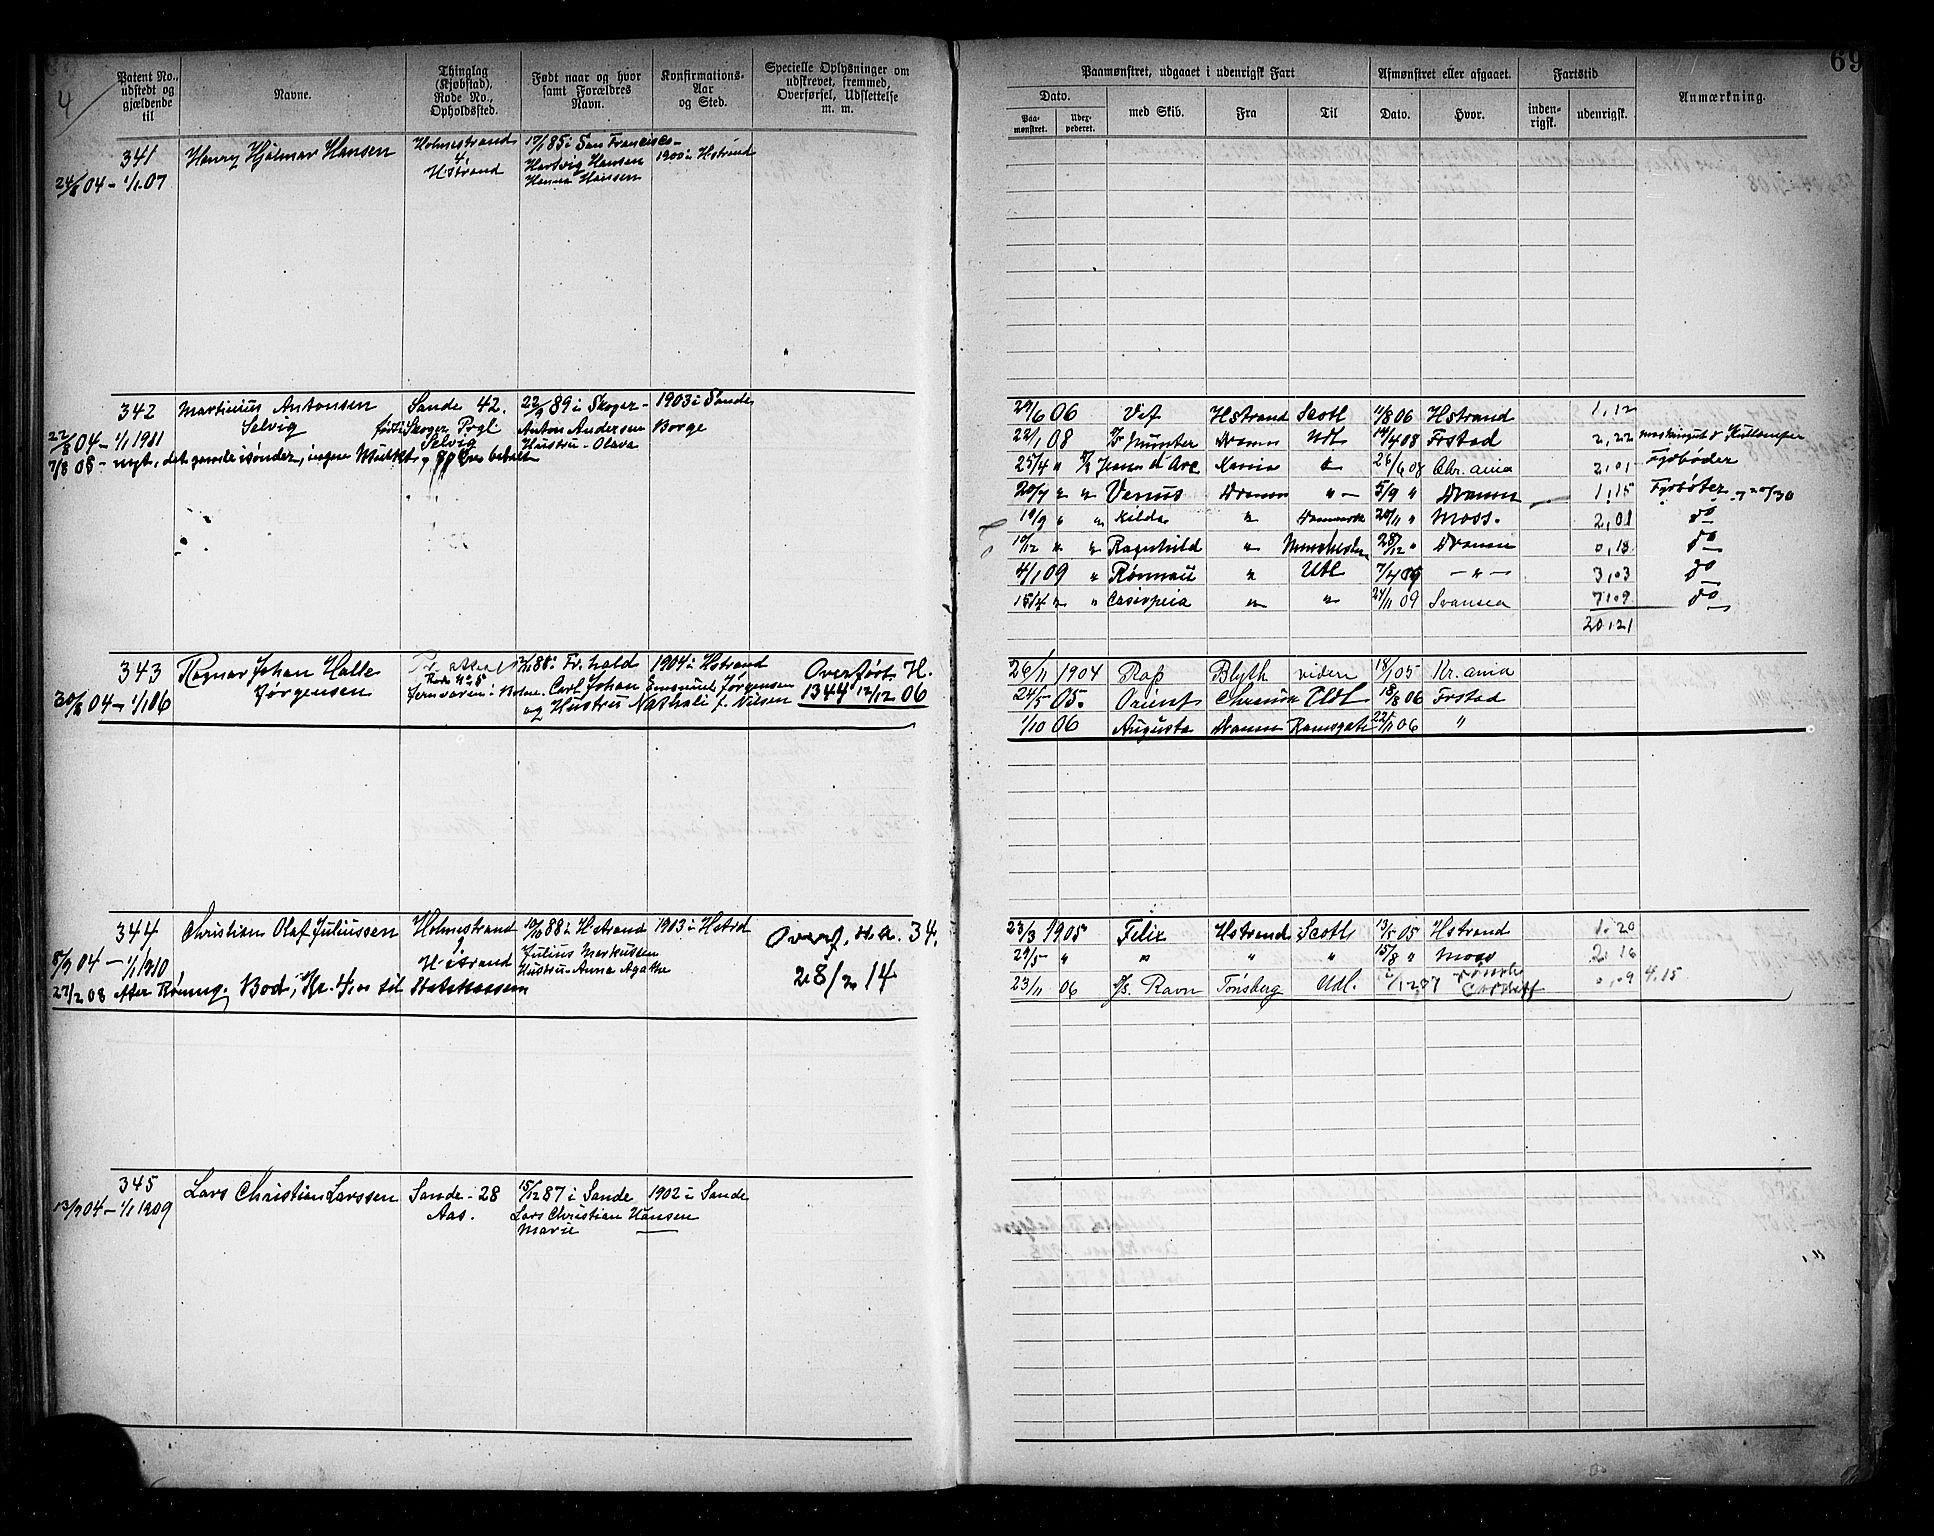 4
Patent No., udstedt og gjældende til
Navne.
Thinglag (Kjøbstad), Rode No., Opholdssted.
Født naar og hvor samt Forældres Navn.
Konfirmations-Aar og Sted.
Specielle Oplysninger om udskrevet, fremmed, Overførsel, Udslettelse m. m.
341
24/8 04 - 1/1 07
Henry Hjalmar Hansen
Holmestrand
4.
Hstrand
17/1 85 i San Francisco -
Hartvig Hansen
Hanna Hansen
1900 i Hstrand
342
22/8 04 - 1/1 1911
Martinius Antonsen
Selvig
Sande 42.
født Skoger Pgl
Selvig
22/9 89 i Skoger -
Anton Andersen
Hustru - Olava
1903 i Sande
Borge
7/8 05 - nyt, det gamle isønder, ingen Mulkt,
343
30/8 04 - 1/1 06
Ragnar Johan Halle
Jørgensen
Rode 4 a 5
88 i Fr.hald
Carl Johan Emanuel Jørgensen
og Hustru Nathali f. Nilsen
1904 i Hstrand
Overført H.
1344 12/12 06
344
5/9 04 - 1/1 1910
Christian Olaf Juliussen
Holmestrand
Hstrand
10/10 88 i Hstrand
Julius Markussen
Hustru - Anna Agathe
1903 i Hstrd
Overf. H.a. 34.
28/2 14
27/2 08 efter Rømng. Bod, Kr. 4,00 til Statskassen
345
13/9 04 - 1/1 1909
Lars Christian Larssen
Sande - 28
Aas.
15/12 87 i Sande
Lars Christian Hansen
Marie
1902 i Sande
69
Paamønstret, udgaaet i udenrigsk Fart
Afmønstret eller afgaaet.
Fartstid
Anmærkning.
Dato.
med Skib.
Fra
Til
Dato.
Hvor.
inden-rigsk.
udenrigsk.
Paa-mønstret.
Udex-pederet.
29/6 06 Vif Hstrand Scotl 11/8 06 Hstrand 1,12
22/1 08 Gunter Dramn Udl 14/4 08 Frstad 2,22
25/4 " Jeanne d'Arc 26/6 08 Chr.ania 2,01 Fyrbøder
20/7 " " Venus Dramn " - 5/9 " Dramn 1,15 Fyrbøter
19/9 " " Kilda " Danmark 20/11 " Moss. 2,01 do
10/12 " " Ragnhild " Manchester 28/12 " Dramn 0,18 do
4/1 09 " Rønnaug " Udl 7/4 09 - " - 3,03 do
15/4 " " Casiopeia " " 24/11 09 Svansea 7,09 do
20,21
26/11 1904 Rap Blyth videre 18/1 05 Kr.ania
24/5 05. Orient Udl 18/8 06 Frstad
1/10 06 Augusta Dramn Ramsgate 22/11 06 "
23/3 1905 Felix Hstrand Scotl 13/5 05 Hstrand 1. 20
29/5 " " " " 15/8 " Moss 2. 16
23/11 06 S/s. Ravn Tønsberg Udl. 07 Rømt Cardiff 0,09 4.15